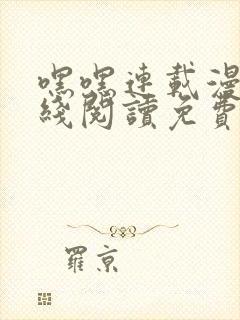 嘿嘿連載漫
綫閱讀免費
羅京